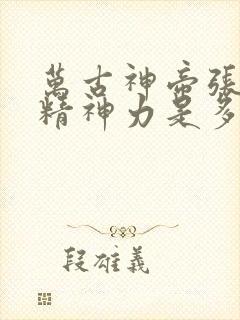 萬古神帝張
精神力是多
段雄義